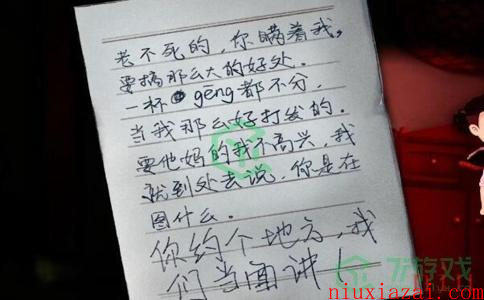 老不死的，你瞒着我，
要搞那么大的好处．
一杯gēng都不分．
当我那么好打发的．
要他妈的我不高兴，我
就到处去说，你是在
图什么。
你约个地方，我
们当面讲！
niuxiazai.com